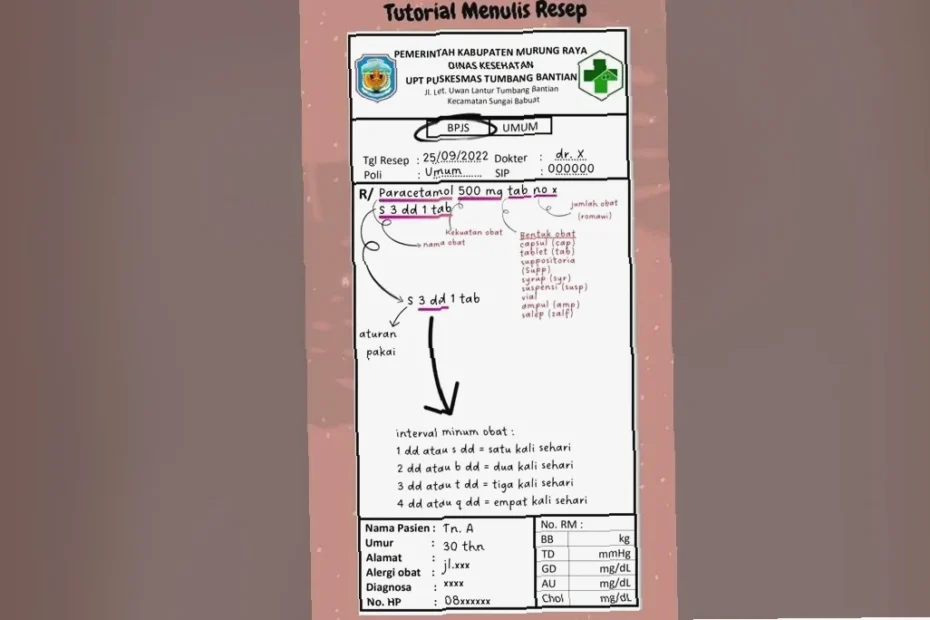 Tutorial Menulis Resep
PEMERINTAH KABUPATEN MURUNG RAYA
DINAS KESEHATAN
UPT PUSKESMAS TUMBANG BANTIAN
Jl. Let. Uwan Lantur Tumbang Bantian
Kecamatan Sungai Babuat
BPJS UMUM
Tgl Resep : 25/09/2022 Dokter : dr. X
Poli : Umum SIP : 000000
R/ Paracetamol 500 mg tab no x
S 3 dd 1 tab
jumlah obat
(romawi)
kekuatan obat
nama obat
Bentuk obat
capsul (cap)
tablet (tab)
suppositoria
(Supp)
syrup (syr)
suspensi (susp)
vial
ampul (amp)
salep (zalf)
S 3 dd 1 tab
aturan
pakai
interval minum obat :
1 dd atau s dd = satu kali sehari
2 dd atau b dd = dua kali sehari
3 dd atau t dd = tiga kali sehari
4 dd atau q dd = empat kali sehari
Nama Pasien : Tn. A
Umur : 30 thn
Alamat : jl.xxx
Alergi obat :
Diagnosa : xxxx
No. HP : 08xxxxxx
No. RM :
BB kg
TD mmHg
GD mg/dL
AU mg/dL
Chol mg/dL